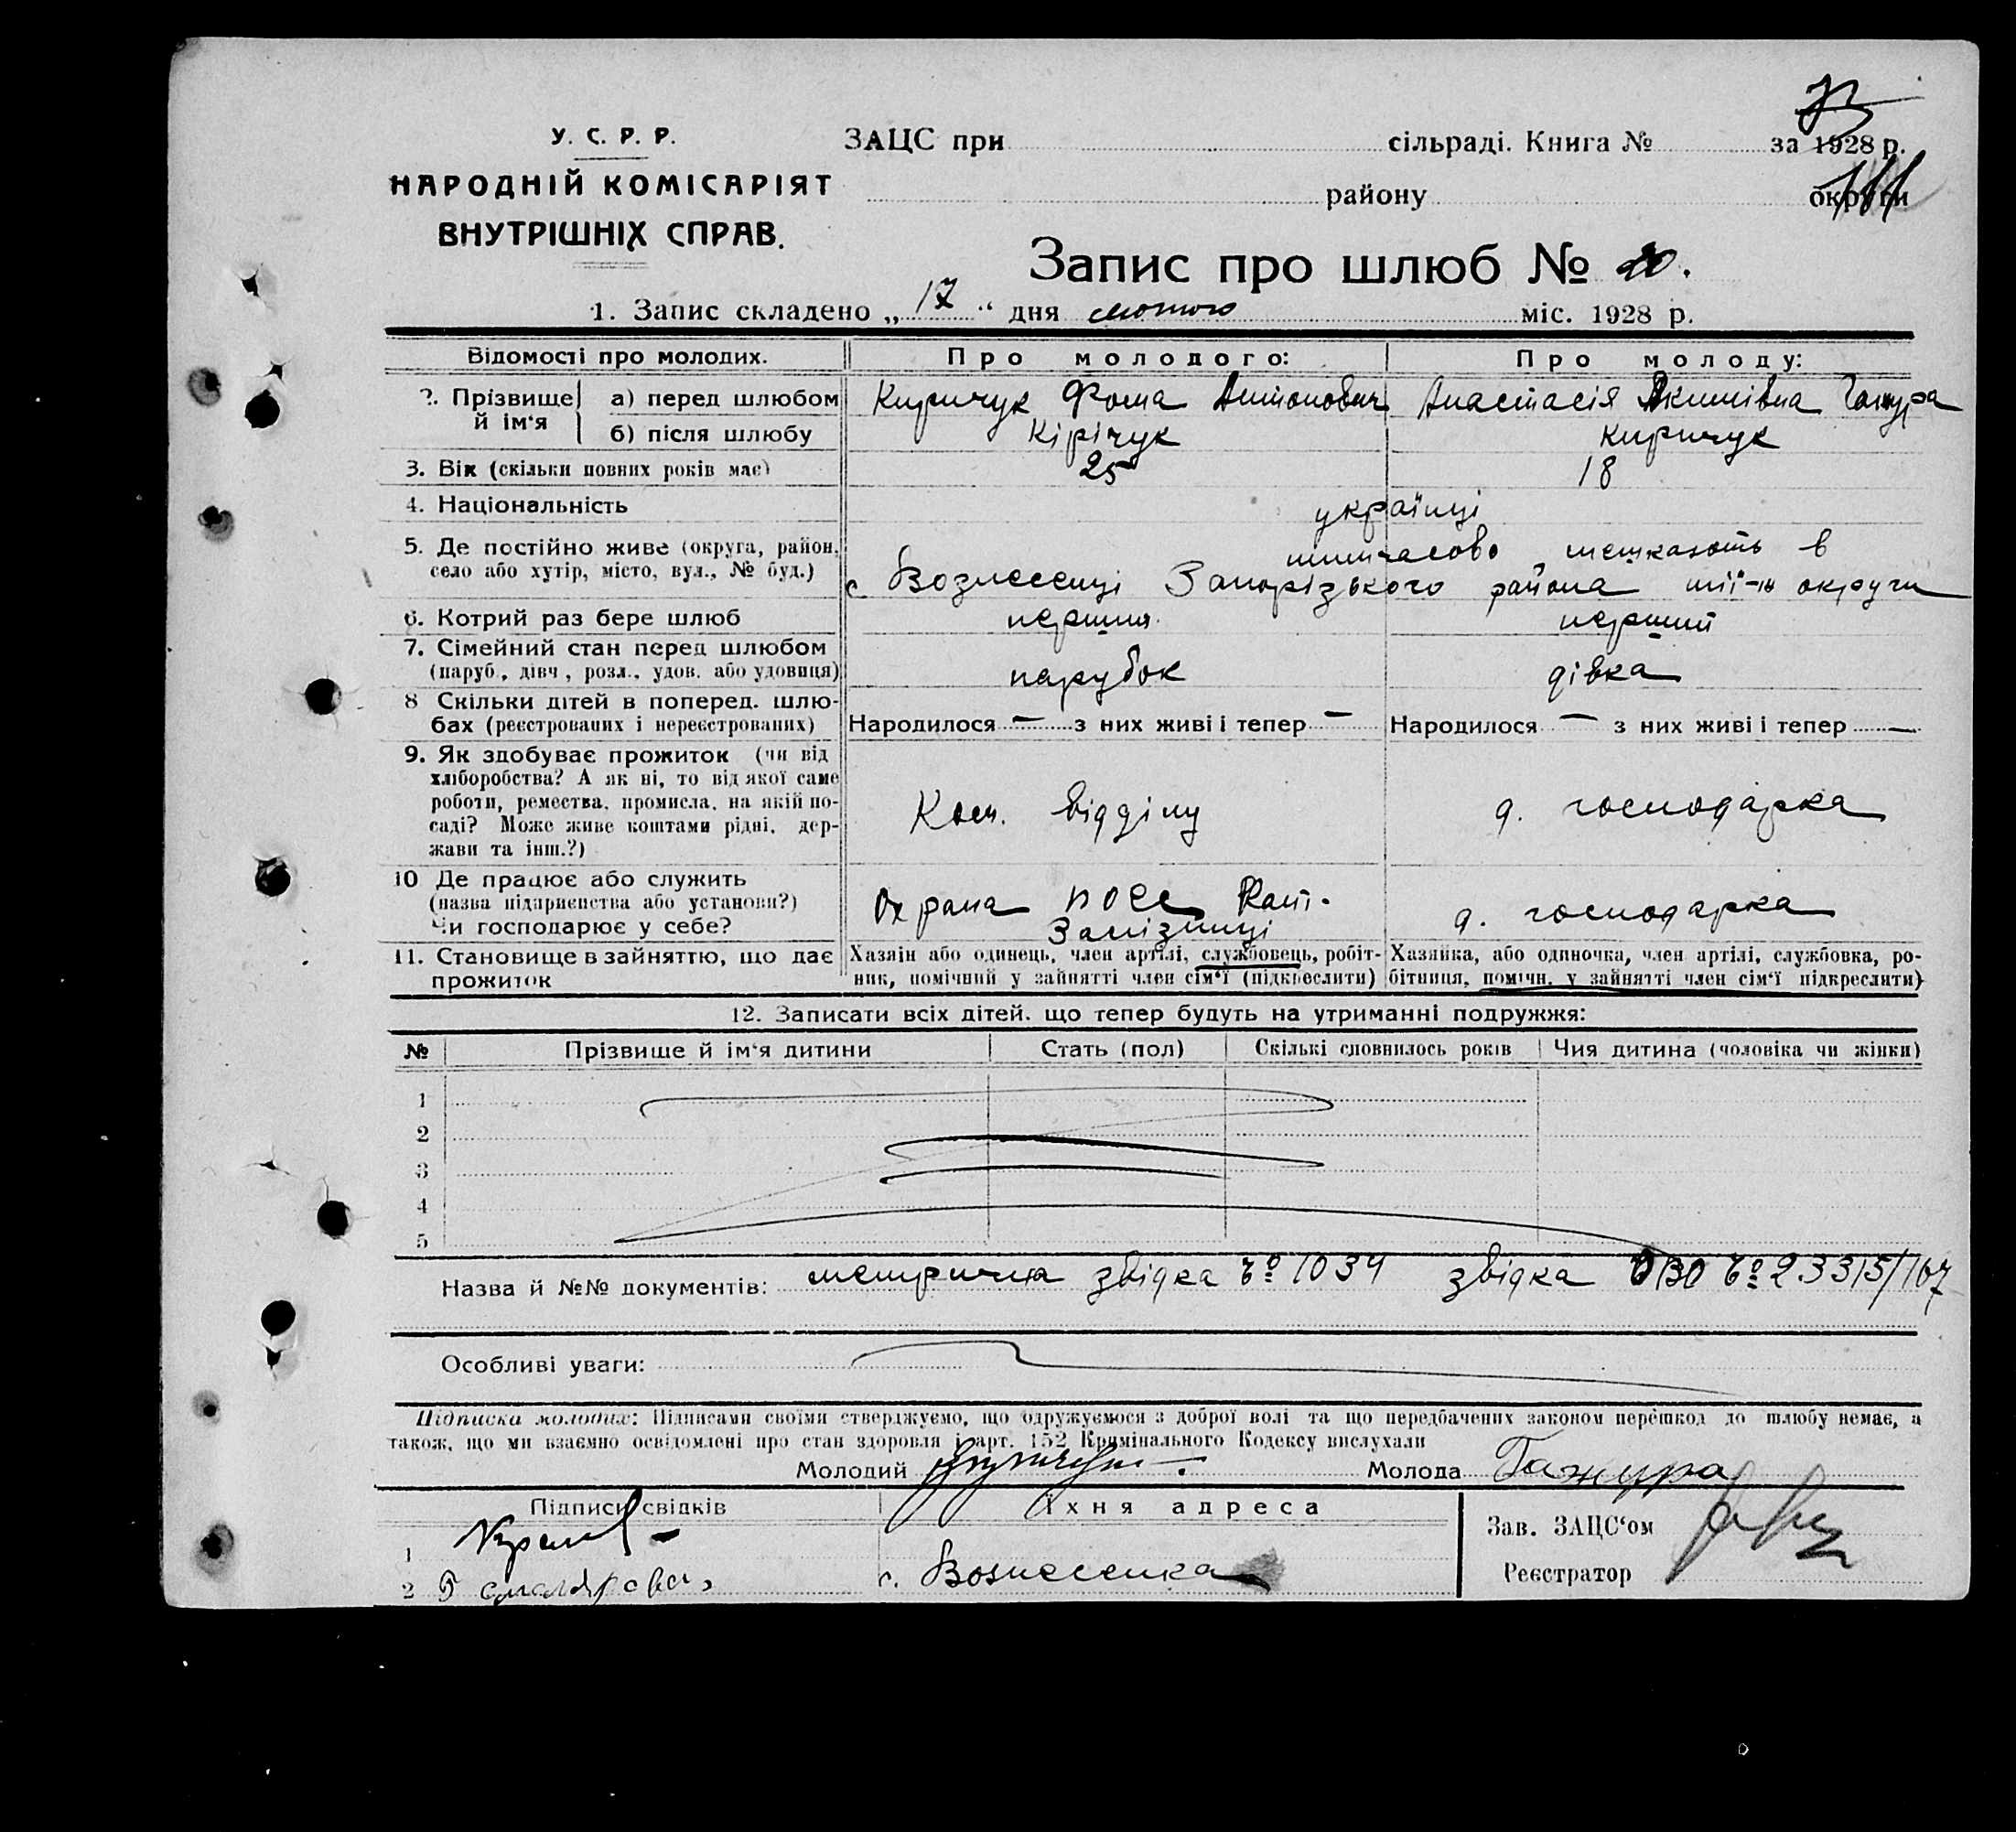 У. С. Р. Р.
НАРОДНІЙ КОМІСАРІЯТ
ВНУТРІШНІХ СПРАВ.
ЗАЦС при сільраді. Книга № за 1928 р.
району округи
Запис про шлюб № 20.
1. Запис складено „ 17 “ дня лютого міс. 1928 р.
Відомості про молодих. Про молодого: Про молоду:
2. Прізвище й ім‘я а) перед шлюбом Киричук Фома Антонович Анастасія Якимівна Гажура
б) після шлюбу Кірічук Киричук
3. Вік (скільки повних років має) 25 18
4. Національність українці
5. Де постійно живе (округа, район, село або хутір, місто, вул., № буд.) тимчасово мешкають в
с Вознесенці Запорізького района тії-ж округи
6. Котрий раз бере шлюб перший перший
7. Сімейний стан перед шлюбом (паруб., дівч., розл., удов. або удовиця) парубок дівка
8 Скільки дітей в поперед. шлюбах (реєстрованих і нереєстрованих) Народилося — з них живі і тепер — Народилося — з них живі і тепер —
9. Як здобуває прожиток (чи від
хліборобства? А як ні, то від якої саме
роботи, ремества, промисла, на якій по-
саді? Може живе коштами рідні, дер-
жави та інш.?)
Ком. відділу д. господарка
10 Де працює або служить
(назва підприємства або установи?)
Чи господарює у себе?
Охрана Кат.
Залізниці д. господарка
11. Становище в зайняттю, що дає прожиток
Хазяїн або одинець, член артілі, службовець, робіт-
ник, помічний у зайнятті член сім‘ї (підкреслити)
Хазяйка, або одиночка, член артілі, службовка, ро-
бітниця, помічн. у зайнятті член сім‘ї підкреслити)
12. Записати всіх дітей. що тепер будуть на утриманні подружжя:
№ Прізвище й ім‘я дитини Стать (пол) Скількі сповнилось років Чия дитина (чоловіка чи жінки)
1
2
3
4
5
Назва й №№ документів: метрична звідка № 1034 звідка ОВО № 23315/167
Особливі уваги:
Підписка молодих: Підписами своїми стверджуємо, що одружуємося з доброї волі та що передбачених законом перешкод до шлюбу немає, а
також, що ми взаємно освідомлені про стан здоровля і арт. 152 Кримінального Кодексу вислухали
Молодий Молода Гажура
Підписи свідків Їхня адреса
Зав. ЗАЦС‘ом
1
2 с. Вознесенка
Реєстратор